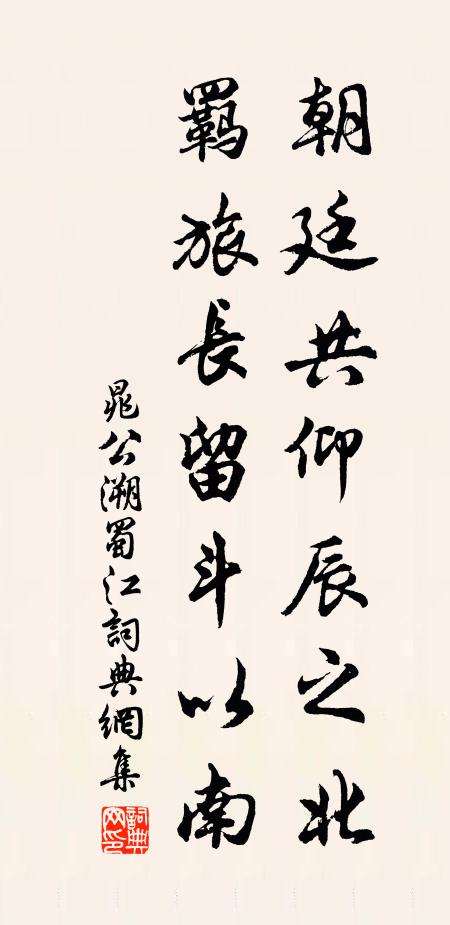 朝廷共仰辰之北
羈旅長留斗以南
晁公溯蜀江詞典網集
詞典網印